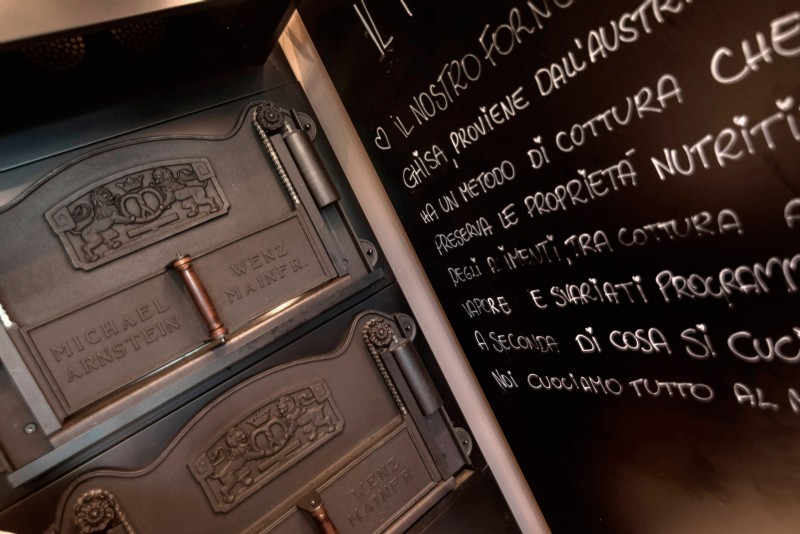 MICHAEL
ARNSTEIN
WENZ
MAINFR.
WENZ
MAINFR.
IL
IL NOSTRO FORNO
GHISA, PROVIENE DALL'AUSTR
HA UN METODO DI COTTURA CHE
PRESERVA LE PROPRIETÀ NUTRITI
DEGLI ALIMENTI, TRA COTTURA A
VAPORE E SVARIATI PROGRAMM
A SECONDA DI COSA SI CUCI
NOI CUOCIAMO TUTTO AL